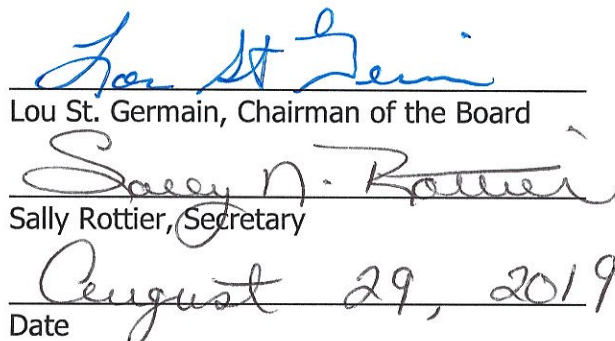 Lou St Germain
Lou St. Germain, Chairman of the Board
Sally N. Rottier
Sally Rottier, Secretary
August 29, 2019
Date